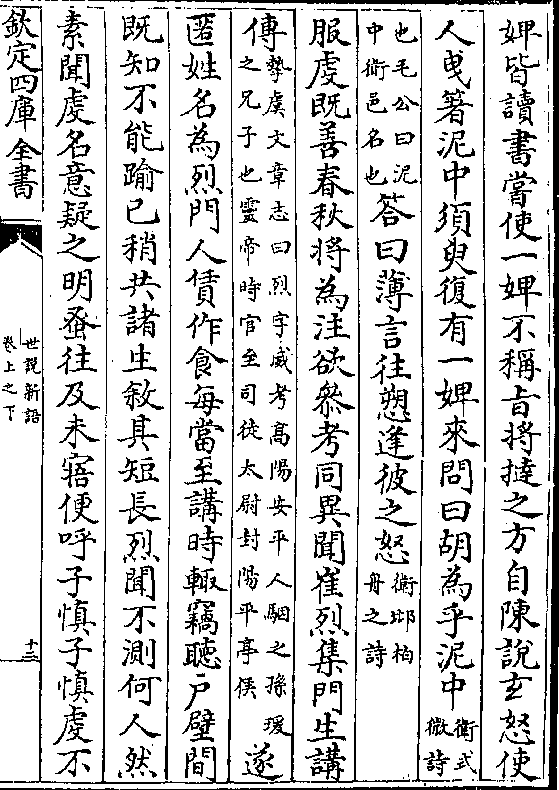 婢皆讀書嘗使一婢不稱旨將撻之方自陳說𤣥怒使
人曵箸泥中須臾復有一婢來問曰胡為乎泥中
衛式
微詩
也毛公曰泥
中衛邑名也
答曰薄言往愬逢彼之怒
衛邶柏
舟之詩
服虔既善春秋將為注欲叅考同異聞崔烈集門生講
傳
摯虞文章志曰烈字威考髙陽安平人駰之孫瑗
之兄子也靈帝時官至司徒太尉封陽平亭侯
遂
匿姓名為烈門人賃作食每當至講時輙竊聽戸壁間
既知不能踰已稍共諸生敘其短長烈聞不測何人然
素聞虔名意疑之明蚤往及未寤便呼子慎子慎虔不
欽定四庫全書
世説新語
卷上之下
十三